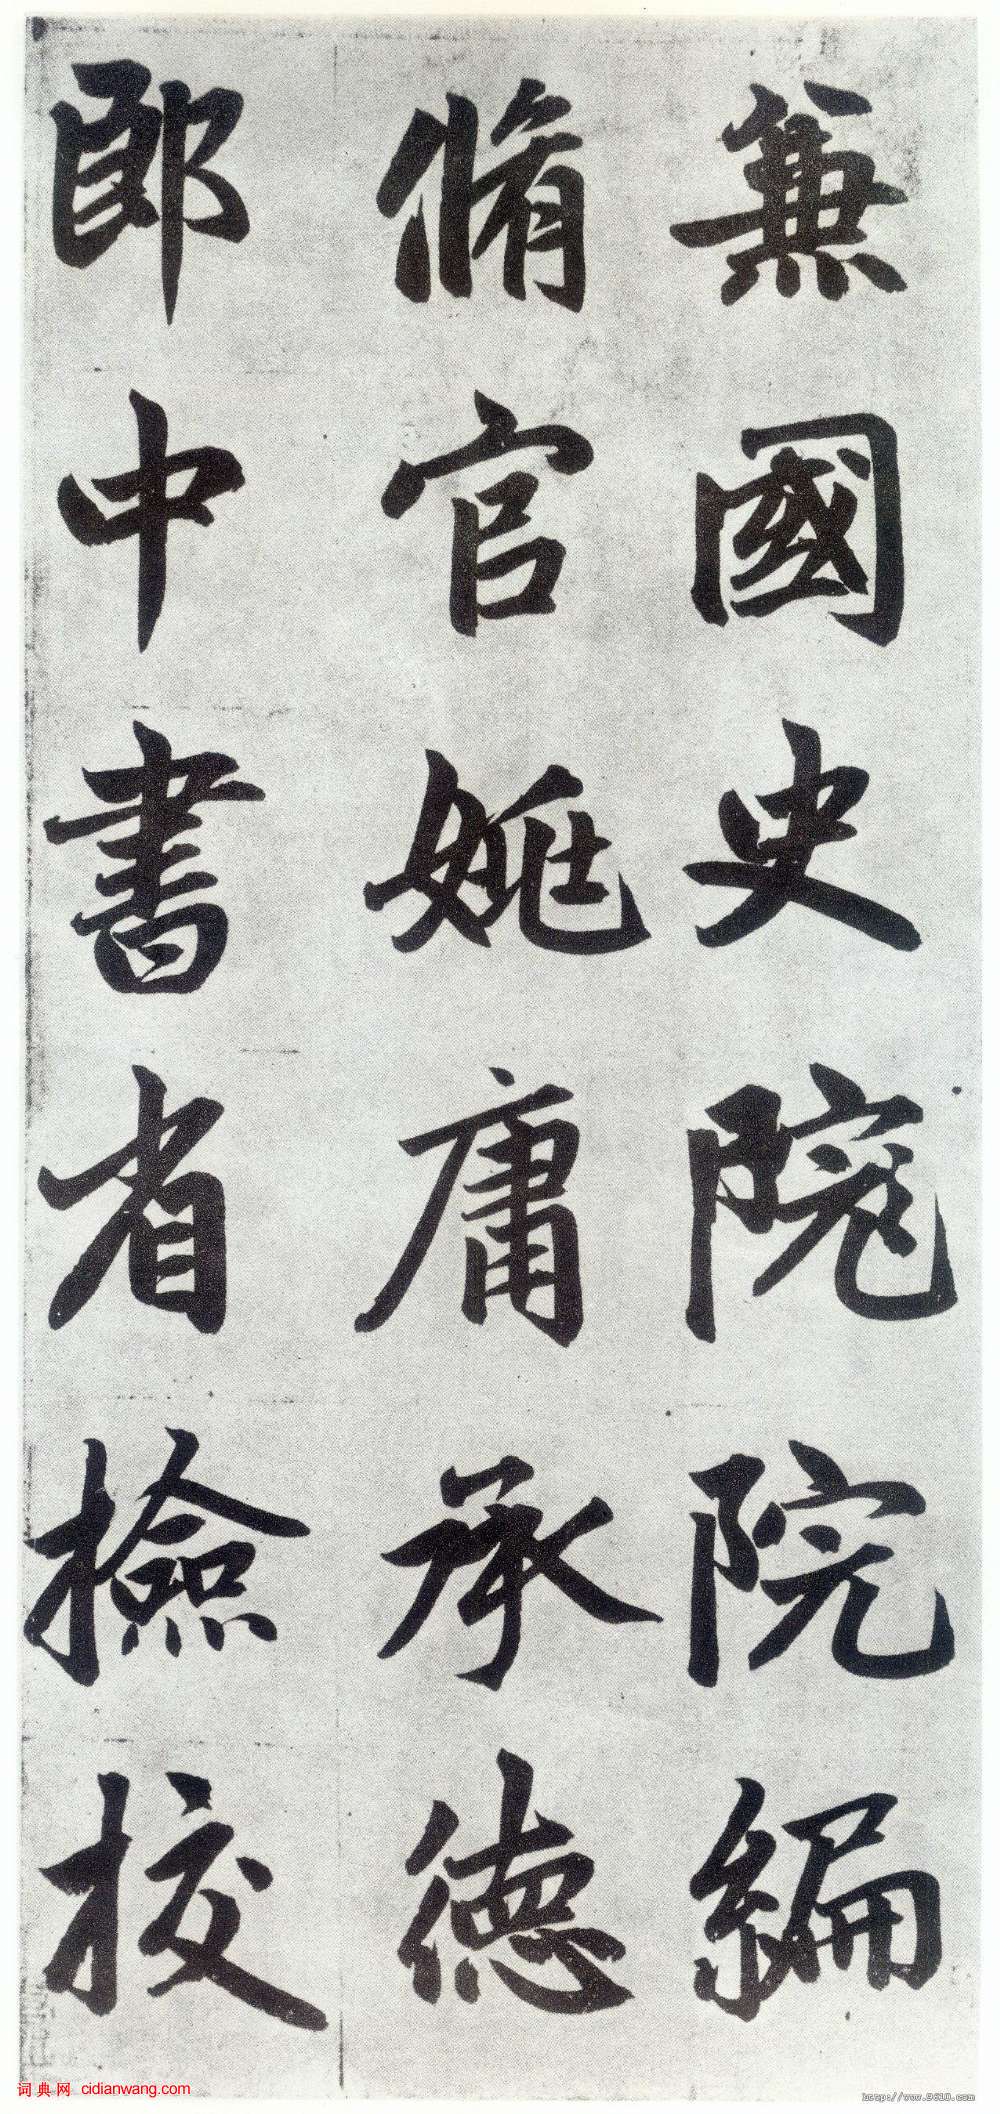 兼國史院院編
脩官姚庸承德
郎中書省檢校
词典网 cidianwang.com
http://www.9610.com